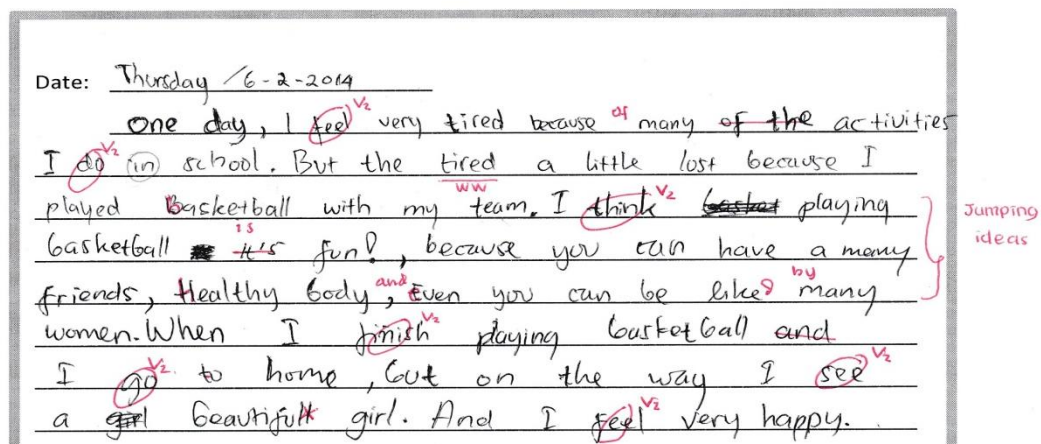 Date: Thursday /6-2-2014
One day, I feel V2 very tired because of many of the activities
I do V2 in school. But the tired a little lost because I
ww
played basketball with my team. I think V2 playing
Jumping ideas
is
basketball it's fun!, because you can have a many
friends, Healthy body, and Even you can be like by many
women. When I finish V2 playing basketball and
I go V2 to home, but on the way I see V2
a beautiful girl. And I feel V2 very happy.